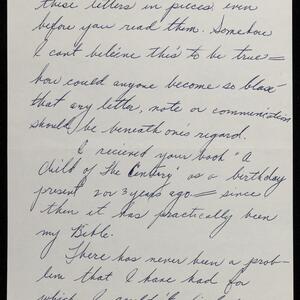 these letters in pieces even
before you read them. Somehow
I can't beleive this to be true =
how could anyone become so blasé
that any letter, note or communication
should be beneath one's regard!
I recieved your book "A
Child of The Century" as a birthday
present 2 or 3 years ago = since
then it has practically been
my Bible.
There has never been a prob-
lem that I have had for
which I